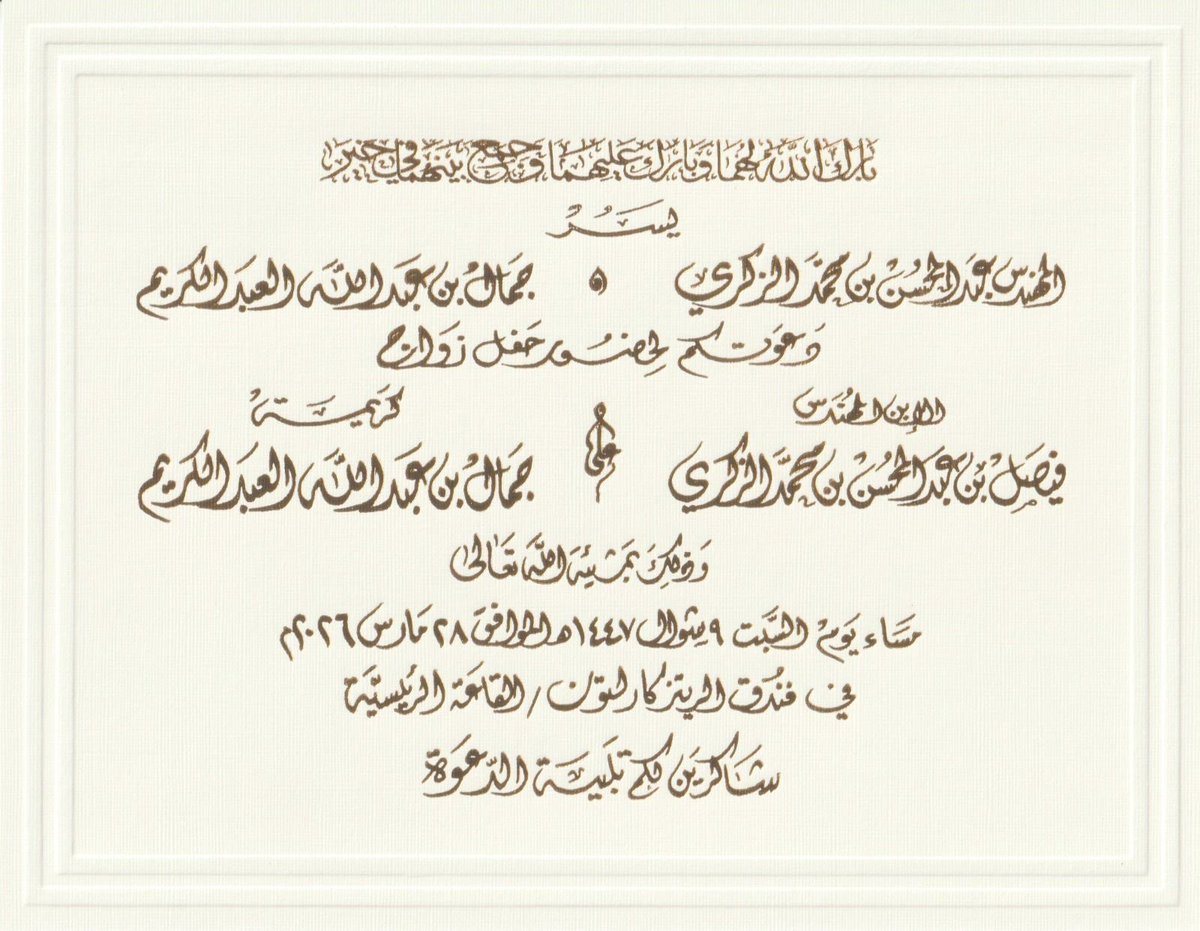 بارك الله لهما وبارك عليهما وجمع بينهما في خير
يسر
المهندس عبدالمحسن بن محمد الزكري و جمال بن عبدالله العبدالكريم
دعوتكم لحضور حفل زواج
الإبن المهندس كريمة
فيصل بن عبدالمحسن بن محمد الزكري على جمال بن عبدالله العبدالكريم
وذلك بمشيئة الله تعالى
مساء يوم السبت ٩ شوال ١٤٤٧هـ الموافق ٢٨ مارس ٢٠٢٦م
في فندق الريتز كارلتون / القاعة الرئيسية
شاكرين لكم تلبية الدعوة